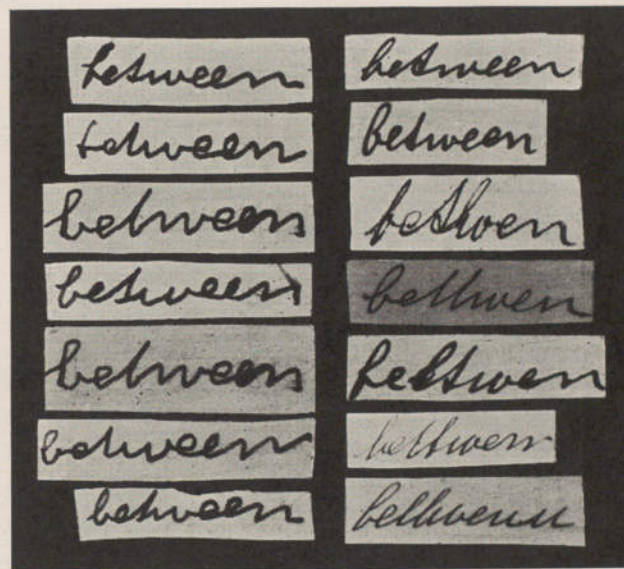 between between
between between
between
between bettwen
between bettwen
between bettwen
between